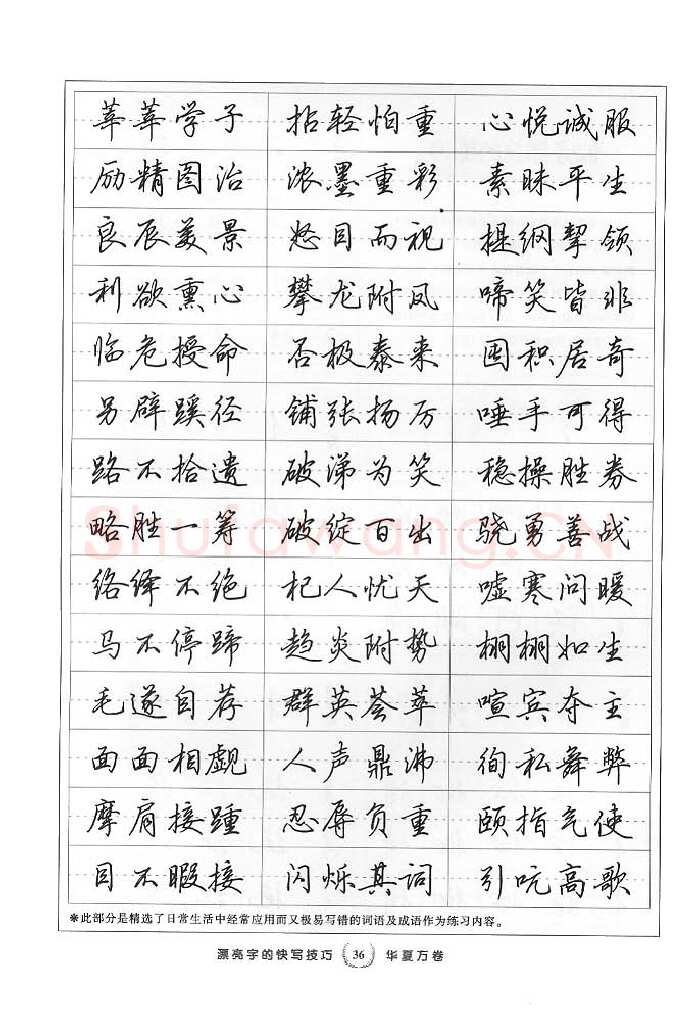 莘莘学子 拈轻怕重 心悦诚服
励精图治 浓墨重彩 素昧平生
良辰美景 怒目而视 提纲挈领
利欲熏心 攀龙附凤 啼笑皆非
临危授命 否极泰来 囤积居奇
另辟蹊径 铺张扬厉 唾手可得
路不拾遗 破涕为笑 稳操胜券
略胜一筹 破绽百出 骁勇善战
络绎不绝 杞人忧天 嘘寒问暖
马不停蹄 趋炎附势 栩栩如生
毛遂自荐 群英荟萃 喧宾夺主
面面相觑 人声鼎沸 徇私舞弊
摩肩接踵 忍辱负重 颐指气使
目不暇接 闪烁其词 引吭高歌
※此部分是精选了日常生活中经常应用而又极易写错的词语及成语作为练习内容。
漂亮字的快写技巧 36 华夏万卷
Shufawang.CN